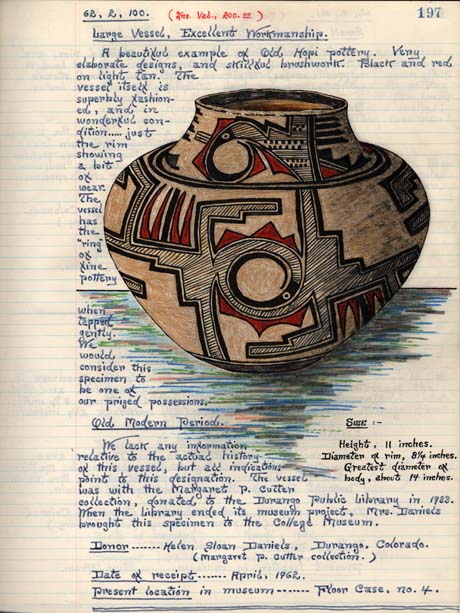 GR, 2, 100. (Ins. Val., 200.00) 197
Large Vessel, Excellent Workmanship.
A beautiful example of Old Hopi pottery. Very
elaborate designs, and skillful brushwork. Black and red
on light tan. The
vessel itself is
superbly fashion-
ed, and in
wonderful con-
dition..... just
the rim
showing
a bit
of
wear.
The
vessel
has
the
"ring"
of
fine
pottery
when
tapped
gently.
We
would
consider this
specimen to
be one of
our prized possessions.
Old Modern Period.
Size :-
Height, 11 inches.
Diameter of rim, 8¼ inches.
Greatest diameter of
body, about 14 inches.
We lack any information
relative to the actual history
of this vessel, but all indications
point to this designation. The vessel
was with the Margaret P. Cutter
collection, donated, to the Durango Public Library in 1933.
When the Library ended its museum project, Mrs. Daniels
brought this specimen to the College Museum.
Donor ------ Helen Sloan Daniels, Durango, Colorado.
(Margaret P. Cutter collection.)
Date of receipt ------ April, 1962.
Present location in museum ------ Floor Case, no. 4.